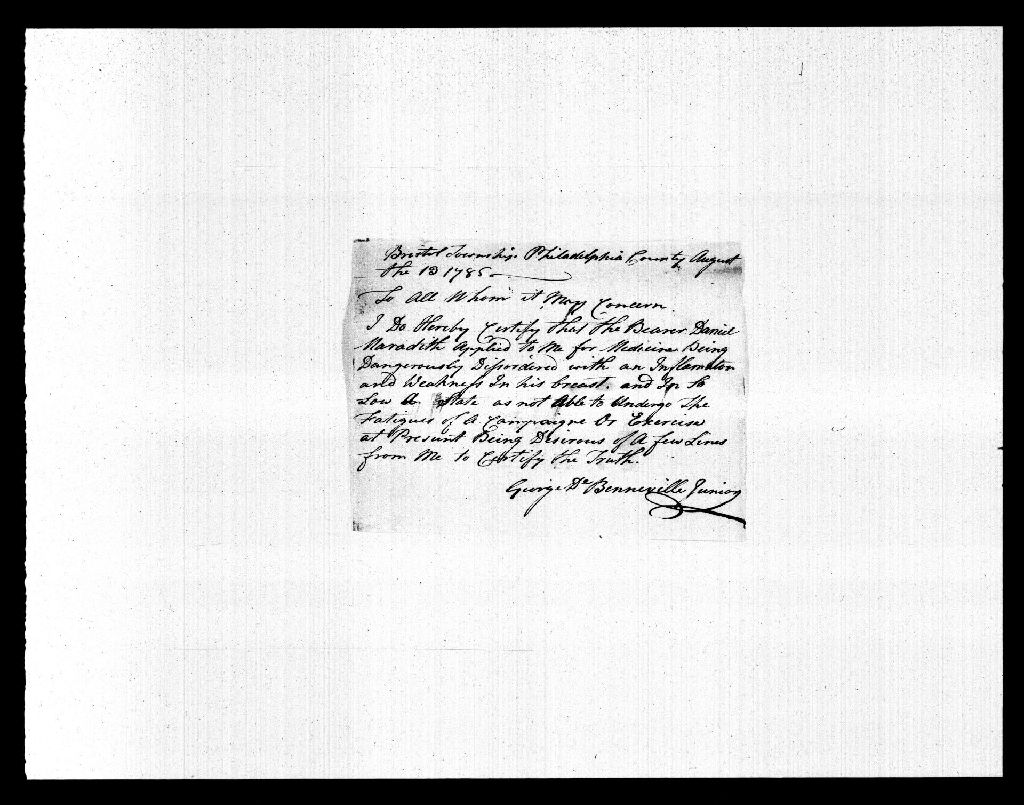 Bristol Township Philadelphia County August
the 13 1785
To All Whom it May Concern
I Do Hereby Certify that the Bearer Daniel
Maradith Applied to Me for Medicine Being
Dangerously Dissordered with an Inflamation
and Weakness In his breast. and In So
Low A State as not Able to Undergo The
Fatigues of A Campaigne Or Exercise
at Present Being Desirous of A few Lines
from Me to Certify the Truth.
George De Benneville Junior